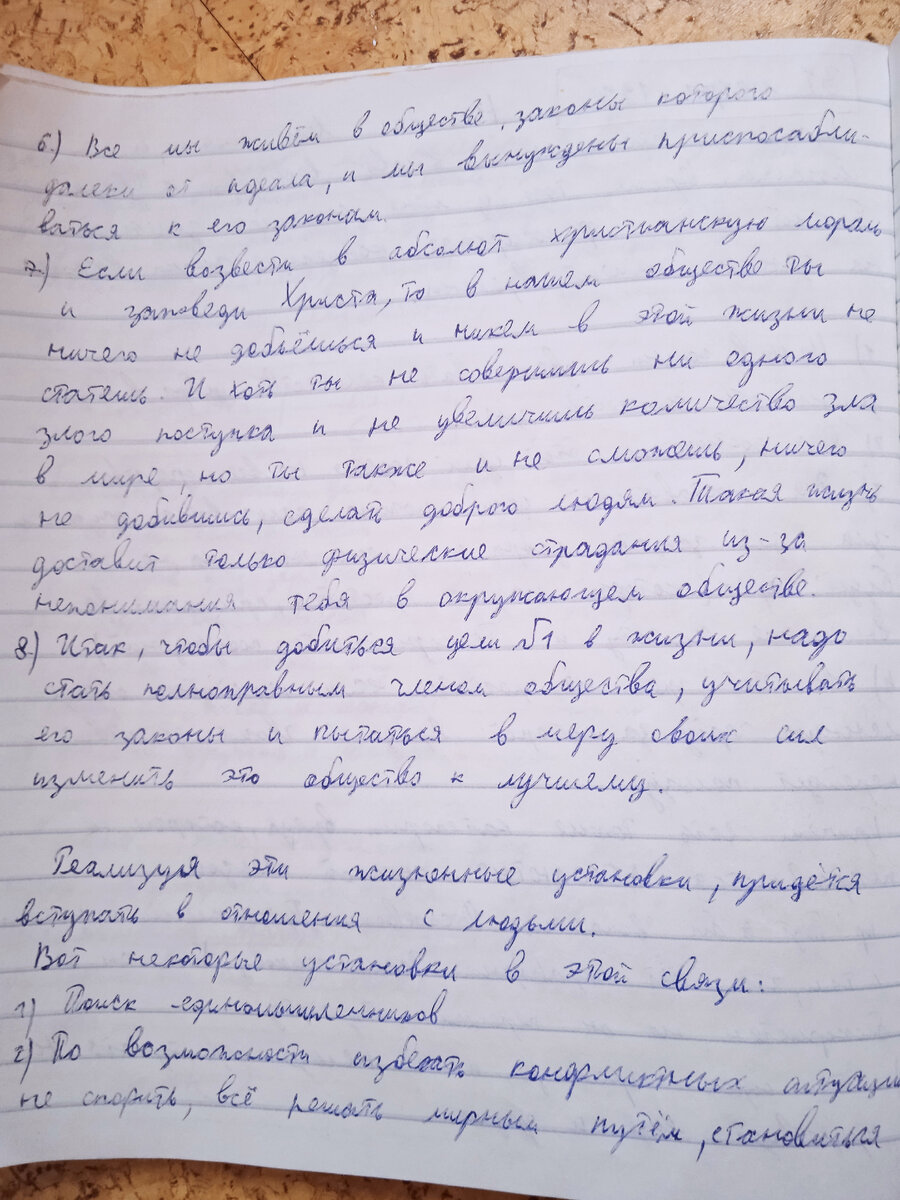 6.) Все мы живём в обществе, законы которого
далеки от идеала, и мы вынуждены приспосабли-
ваться к его законам.
7.) Если возвести в абсолют христианскую мораль
и заповеди Христа, то в нашем обществе ты
ничего не добьёшься и никем в этой жизни не
станешь. И хоть ты не совершишь ни одного
злого поступка и не увеличишь количество зла
в мире, но ты также и не сможешь, ничего
не добившись, сделать доброго людям. Такая жизнь
доставит только физические страдания из-за
непонимания тебя в окружающем обществе.
8.) Итак, чтобы добиться цели №1 в жизни, надо
стать полноправным членом общества, учитывать
его законы и пытаться в меру своих сил
изменить это общество к лучшему.
Реализуя эти жизненные установки, придётся
вступать в отношения с людьми.
Вот некоторые установки в этой связи:
1) Поиск единомышленников
2) По возможности избегать конфликтных ситуаций
не спорить, всё решать мирным путём, становиться